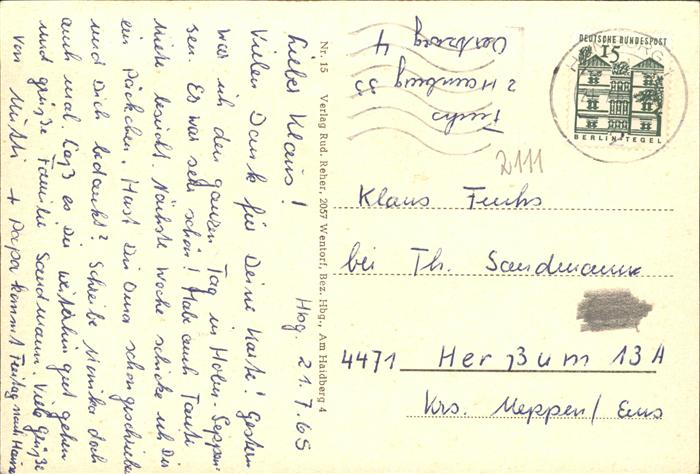 Hbg. 21.7.65
Lieber Klaus!
Vielen Dank für Deine Karte! Gestern
war ich den ganzen Tag in Holm-Seppen-
sen. Es war sehr schön! Habe auch Tante
besucht. Nächste Woche schicke ich Dir
ein Päckchen. Hast Du Oma schon geschrieben
und Dich bedankt? Schreibe Monika doch
auch mal. Laß es Dir weiterhin gut gehen
und grüße Familie Sandmann. Viele Grüße
von Mutti + Papa kommt Freitag nach Hause
Nr. 15 Verlag Rud. Reher, 2057 Wentorf, Bez. Hbg., Am Haidberg 4
Fuchs
2 Hamburg 55
4
DEUTSCHE BUNDESPOST
15
BERLIN-TEGEL
2111
Klaus Fuchs
bei Th. Sandmann
4471 Herßum 13A
Krs. Meppen/Ems